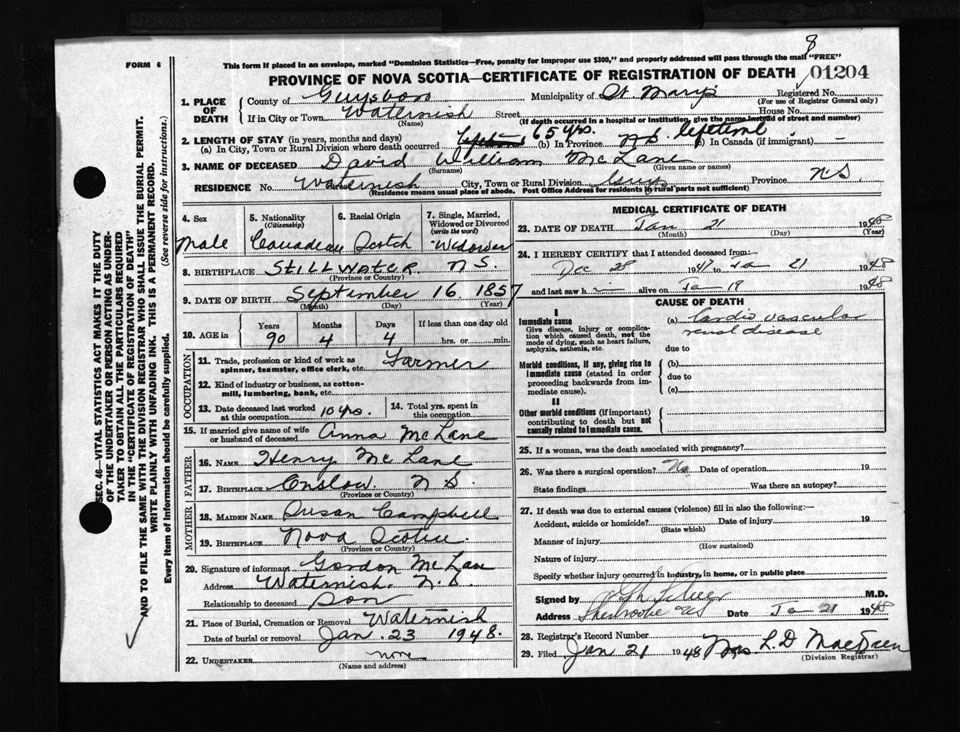 8
This form if placed in an envelope, marked "Dominion Statistics—Free, penalty for improper use $300," and properly addressed will pass through the mail "FREE"
FORM 6
PROVINCE OF NOVA SCOTIA—CERTIFICATE OF REGISTRATION OF DEATH
01204
1. PLACE OF DEATH
County of Guysboro Municipality of St Mary's Registered No.
(For use of Registrar General only)
If in City or Town Waternish Street House No.
(Name) (If death occurred in a hospital or institution, give the name instead of street and number)
2. LENGTH OF STAY (in years, months and days)
(a) In City, Town or Rural Division where death occurred 65 yrs. (b) In Province N.S. lifetime (b) In Canada (if immigrant) —
3. NAME OF DECEASED David William McLane
(Surname) (Given name or names)
RESIDENCE No. Waternish City, Town or Rural Division Guys Province N.S.
(Residence means usual place of abode. Post Office Address for residents in rural parts not sufficient)
4. Sex
Male
5. Nationality (Citizenship)
Canadian
6. Racial Origin
Scotch
7. Single, Married, Widowed or Divorced (write the word)
Widower
8. BIRTHPLACE Stillwater N.S.
(Province or Country)
9. DATE OF BIRTH September 16 1857
(Month) (Day) (Year)
10. AGE in Years Months Days If less than one day old
90 4 4 hrs. or min.
OCCUPATION
11. Trade, profession or kind of work as spinner, teamster, office clerk, etc. Farmer
12. Kind of industry or business, as cotton-mill, lumbering, bank, etc.
13. Date deceased last worked at this occupation 10 yrs. 14. Total yrs. spent in this occupation
15. If married give name of wife or husband of deceased Anna McLane
FATHER
16. NAME Henry McLane
17. BIRTHPLACE Onslow N S
(Province or Country)
MOTHER
18. MAIDEN NAME Susan Campbell
19. BIRTHPLACE Nova Scotia
(Province or Country)
20. Signature of informant Gordon McLane
Address Waternish N.S.
Relationship to deceased Son
21. Place of Burial, Cremation or Removal Waternish
Date of burial or removal Jan. 23 1948.
22. UNDERTAKER none
(Name and address)
MEDICAL CERTIFICATE OF DEATH
23. DATE OF DEATH Jan 21 1948
(Month) (Day) (Year)
24. I HEREBY CERTIFY that I attended deceased from
Dec 28 1947 to Jan 21 1948
and last saw h alive on Jan 19 1948
CAUSE OF DEATH
I
Immediate cause
Give disease, injury or complication which caused death, not the mode of dying, such as heart failure, asphyxia, asthenia, etc.
(a) Cardio vascular renal disease
due to
Morbid conditions, if any, giving rise to immediate cause (stated in order proceeding backwards from immediate cause).
(b)
due to
(c)
II
Other morbid conditions (if important) contributing to death but not causally related to immediate cause.
25. If a woman, was the death associated with pregnancy?
26. Was there a surgical operation? No Date of operation 19
State findings Was there an autopsy?
27. If death was due to external causes (violence) fill in also the following:—
Accident, suicide or homicide? Date of injury 19
(State which)
Manner of injury
(How sustained)
Nature of injury
Specify whether injury occurred in industry, in home, or in public place
Signed by M.D.
Address Sherbrooke NS Date Jan 21 1948
28. Registrar's Record Number
29. Filed Jan 21 1948 Mrs L. D
(Division Registrar)
SEC. 46—VITAL STATISTICS ACT MAKES IT THE DUTY
OF THE UNDERTAKER OR PERSON ACTING AS UNDER-
TAKER TO OBTAIN ALL THE PARTICULARS REQUIRED
IN THE "CERTIFICATE OF REGISTRATION OF DEATH"
AND TO FILE THE SAME WITH THE DIVISION REGISTRAR WHO SHALL ISSUE THE BURIAL PERMIT.
WRITE PLAINLY WITH UNFADING INK. THIS IS A PERMANENT RECORD.
Every item of information should be carefully supplied. (See reverse side for instructions.)